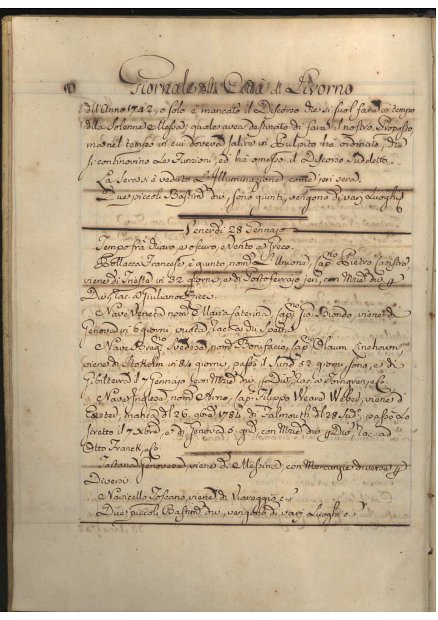 Giornale della Città di Livorno
dell'Anno 1742, e solo è mancato il Discorso che si suol fare in tempo
della Solenne Messa, quale avea destinato di fare il nostro Proposto,
ma nel tempo in cui doveva salire in Pulpito ha ordinato, che
si continovino le Funzioni, ed ha omesso il Discorso Sudetto.
La Sera si è veduto l'Illuminazione, come jeri sera.
Due piccoli Bastim.ti div.si, sono giunti, vengono di varj Luoghi
Venerdì 28 Gennajo
Tempo frà chiaro, e oscuro, e Vento a Greco.
Pollacca Francese, è giunto, nom.ta L'Unione, Cap.no Pietro
viene di Trieste in 32 giorni, e di Portoferrajo jeri, con Merci div.e p
Div.si, rac. a Giuliano Ricci.
Nave Veneta nom.ta Maria Caterina, Cap.no Gio. Biondo, viene di
Genova in 6 giorni, vuota, rac. a
Nave Svedesa nom.ta Bonifacio, Cap.
viene di Stokolm in 84 giorni, passò il Sund 52 giorni sono, e di
Gibilterra il 7 Gennajo, con Merci div.e p Div.si, rac. a
Nave Inglesa nom.ta Cap. Filippo Weare Weber, viene d'
Exeter, manca dal 26. 9bre 1784, di Falmouth dal 28 Sud.o, passò lo
Stretto il 7 Xbre, e di Genova 6 gni, con Merci div.e p Div.si, rac. a
Otto Franck,
Tartana Genovesa, viene di Messina, con Mercanzie diverse p
Diversi.
Navicello Toscano, viene di Viareggio, e
Due piccoli Bastim.ti div.si, vengono di varj Luoghi e